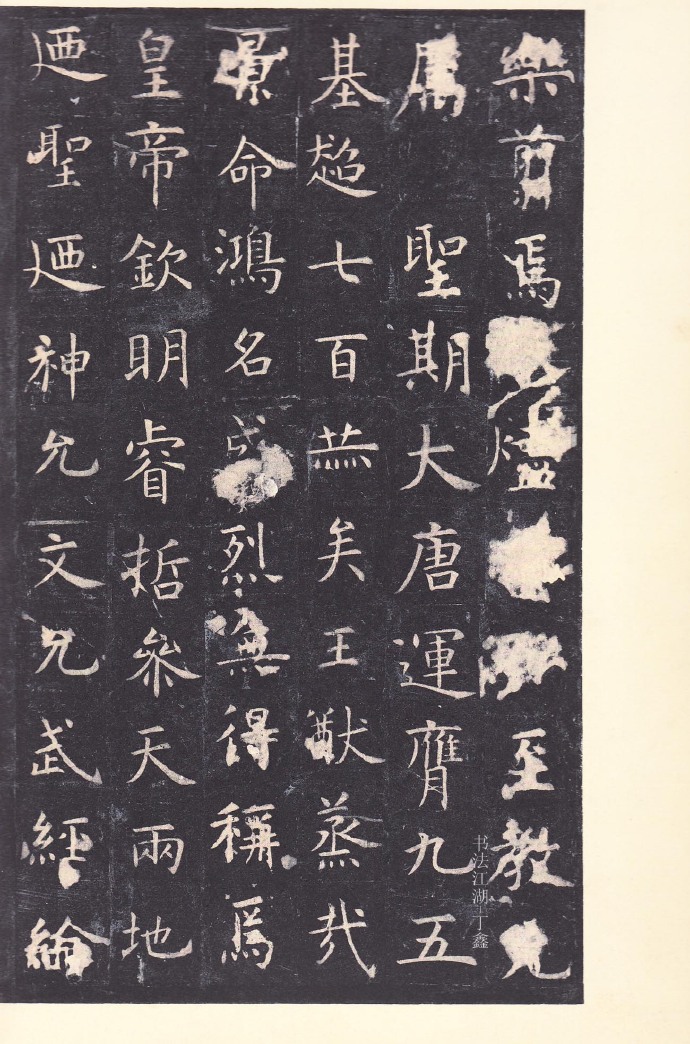 樂翦焉燼至教允
屬聖期大唐運膺九五
基超七百赫矣王猷蒸哉
景命鴻名盛烈無得稱焉
皇帝欽明睿哲參天兩地
迺聖迺神允文允武經綸
书法江湖丁鑫